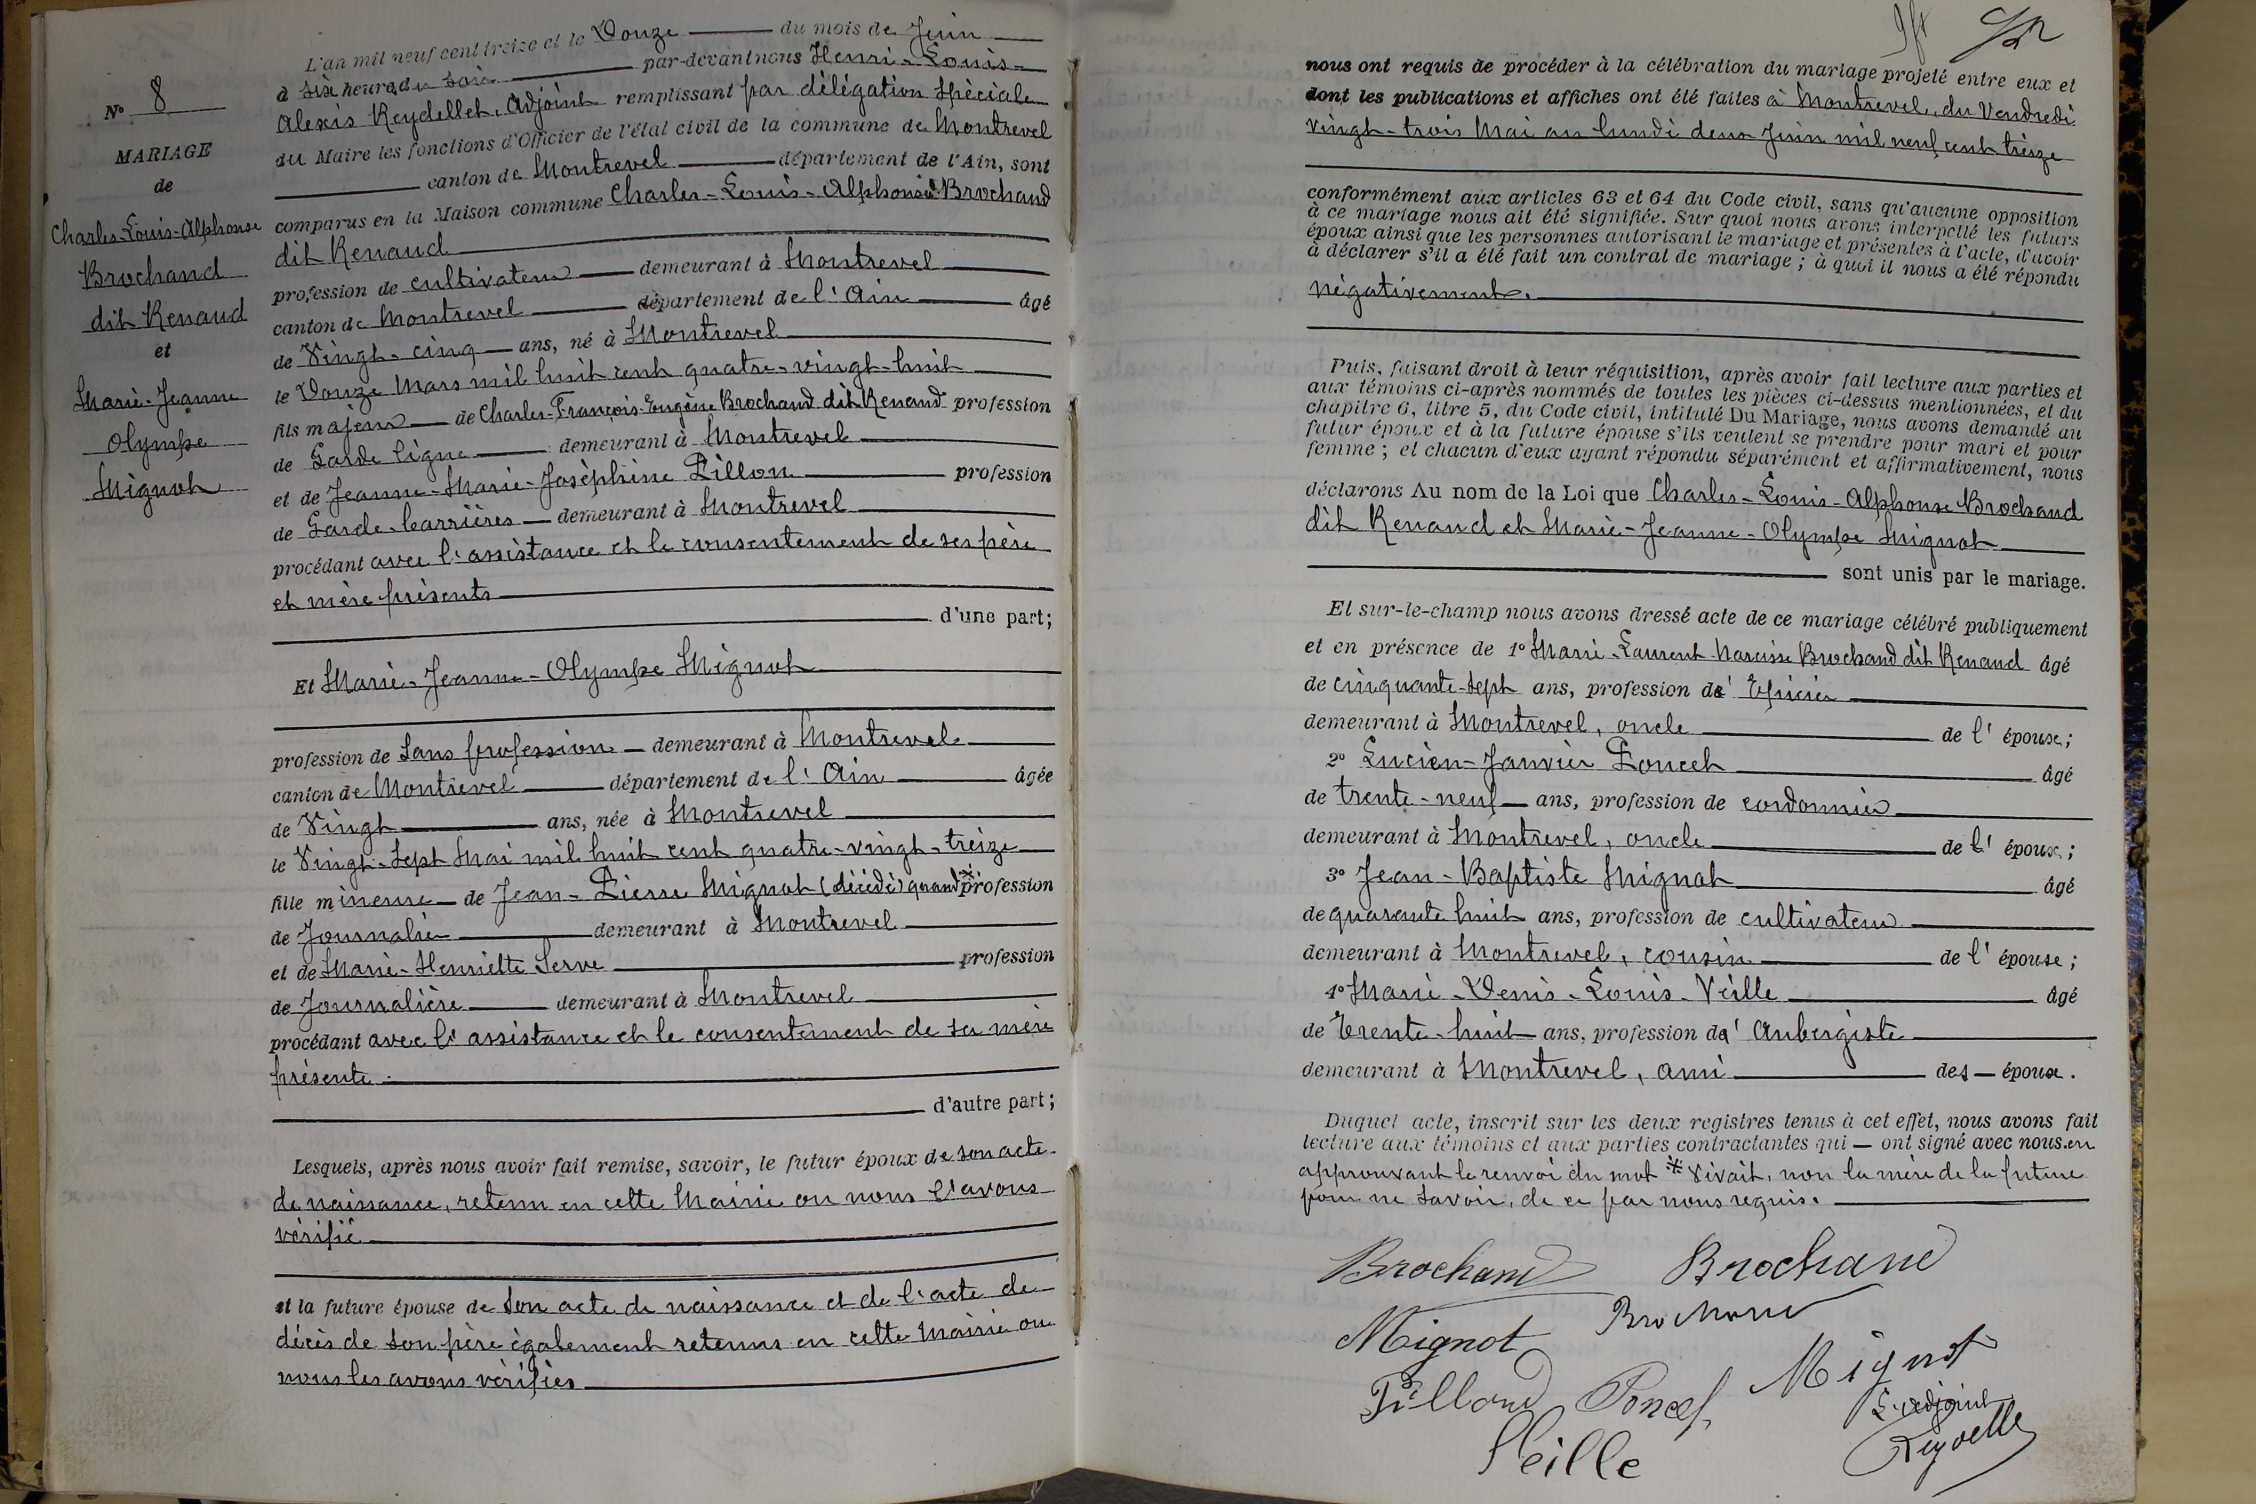 N° 8
MARIAGE
de
Charles-Louis-Alphonse
Brochand
dit Renaud
et
Marie-Jeanne
Olympe
Mignot
L'an mil neuf cent treize et le Douze du mois de Juin
à six heures du soir par-devant nous Henri-Louis-
Alexis Reydellet, Adjoint remplissant par délégation spéciale
du Maire les fonctions d'Officier de l'état civil de la commune de Montrevel
canton de Montrevel département de l'Ain, sont
comparus en la Maison commune Charles-Louis-Alphonse Brochand
dit Renaud
profession de cultivateur demeurant à Montrevel
canton de Montrevel département de l'Ain âgé
de Vingt-cinq ans, né à Montrevel
le Douze Mars mil huit cent quatre-vingt-huit
fils majeur de Charles-François-Eugène Brochand dit Renaud profession
de Garde ligne demeurant à Montrevel
et de Jeanne-Marie-Joséphine Pillon profession
de Garde-barrières demeurant à Montrevel
procédant avec l'assistance et le consentement de ses père
et mère présents
d'une part;
Et Marie-Jeanne-Olympe Mignot
profession de Sans profession demeurant à Montrevel
canton de Montrevel département de l'Ain âgée
de Vingt ans, née à Montrevel
le Vingt-Sept Mai mil huit cent quatre-vingt-treize
fille mineure de Jean-Pierre Mignot (décédé) quand * profession
de Journalier demeurant à Montrevel
et de Marie-Henriette Serve profession
de Journalière demeurant à Montrevel
procédant avec l'assistance et le consentement de sa mère
présente.
d'autre part;
Lesquels, après nous avoir fait remise, savoir, le futur époux de son acte
de naissance, retenu en cette Mairie ou nous l'avons
vérifié
et la future épouse de son acte de naissance et de l'acte de
décès de son père également retenus en cette Mairie ou
nous les avons vérifiés
nous ont requis de procéder à la célébration du mariage projeté entre eux et
dont les publications et affiches ont été faites à Montrevel, du Vendredi
vingt-trois Mai au lundi deux Juin mil neuf cent treize
conformément aux articles 63 et 64 du Code civil, sans qu'aucune opposition
à ce mariage nous ait été signifiée. Sur quoi nous avons interpellé les futurs
époux ainsi que les personnes autorisant le mariage et présentes à l'acte, d'avoir
à déclarer s'il a été fait un contrat de mariage; à quoi il nous a été répondu
négativement.
Puis, faisant droit à leur réquisition, après avoir fait lecture aux parties et
aux témoins ci-après nommés de toutes les pièces ci-dessus mentionnées, et du
chapitre 6, titre 5, du Code civil, intitulé Du Mariage, nous avons demandé au
futur époux et à la future épouse s'ils veulent se prendre pour mari et pour
femme; et chacun d'eux ayant répondu séparément et affirmativement, nous
déclarons Au nom de la Loi que Charles-Louis-Alphonse Brochand
dit Renaud et Marie-Jeanne-Olympe Mignot
sont unis par le mariage.
Et sur-le-champ nous avons dressé acte de ce mariage célébré publiquement
et en présence de 1° Marie-Laurent Narcisse Brochand dit Renaud âgé
de cinquante-sept ans, profession d' Epicier
demeurant à Montrevel, oncle de l' épouse;
2° Lucien-Janvier Poncet âgé
de trente-neuf ans, profession de cordonnier
demeurant à Montrevel, oncle de l' époux;
3° Jean-Baptiste Mignot âgé
de quarante huit ans, profession de cultivateur
demeurant à Montrevel, cousin de l' épouse;
4° Marie-Denis-Louis-Veille âgé
de Trente-huit ans, profession d' Aubergiste
demeurant à Montrevel, ami des époux.
Duquel acte, inscrit sur les deux registres tenus à cet effet, nous avons fait
lecture aux témoins et aux parties contractantes qui ont signé avec nous. en
approuvant le renvoi du mot * Vivait, non la mère de la future
pour ne savoir, de ce par nous requis.
Brochand Brochand
Mignot Brochand
Pillond Poncet Mignot
L'adjoint
Veille Reydellet